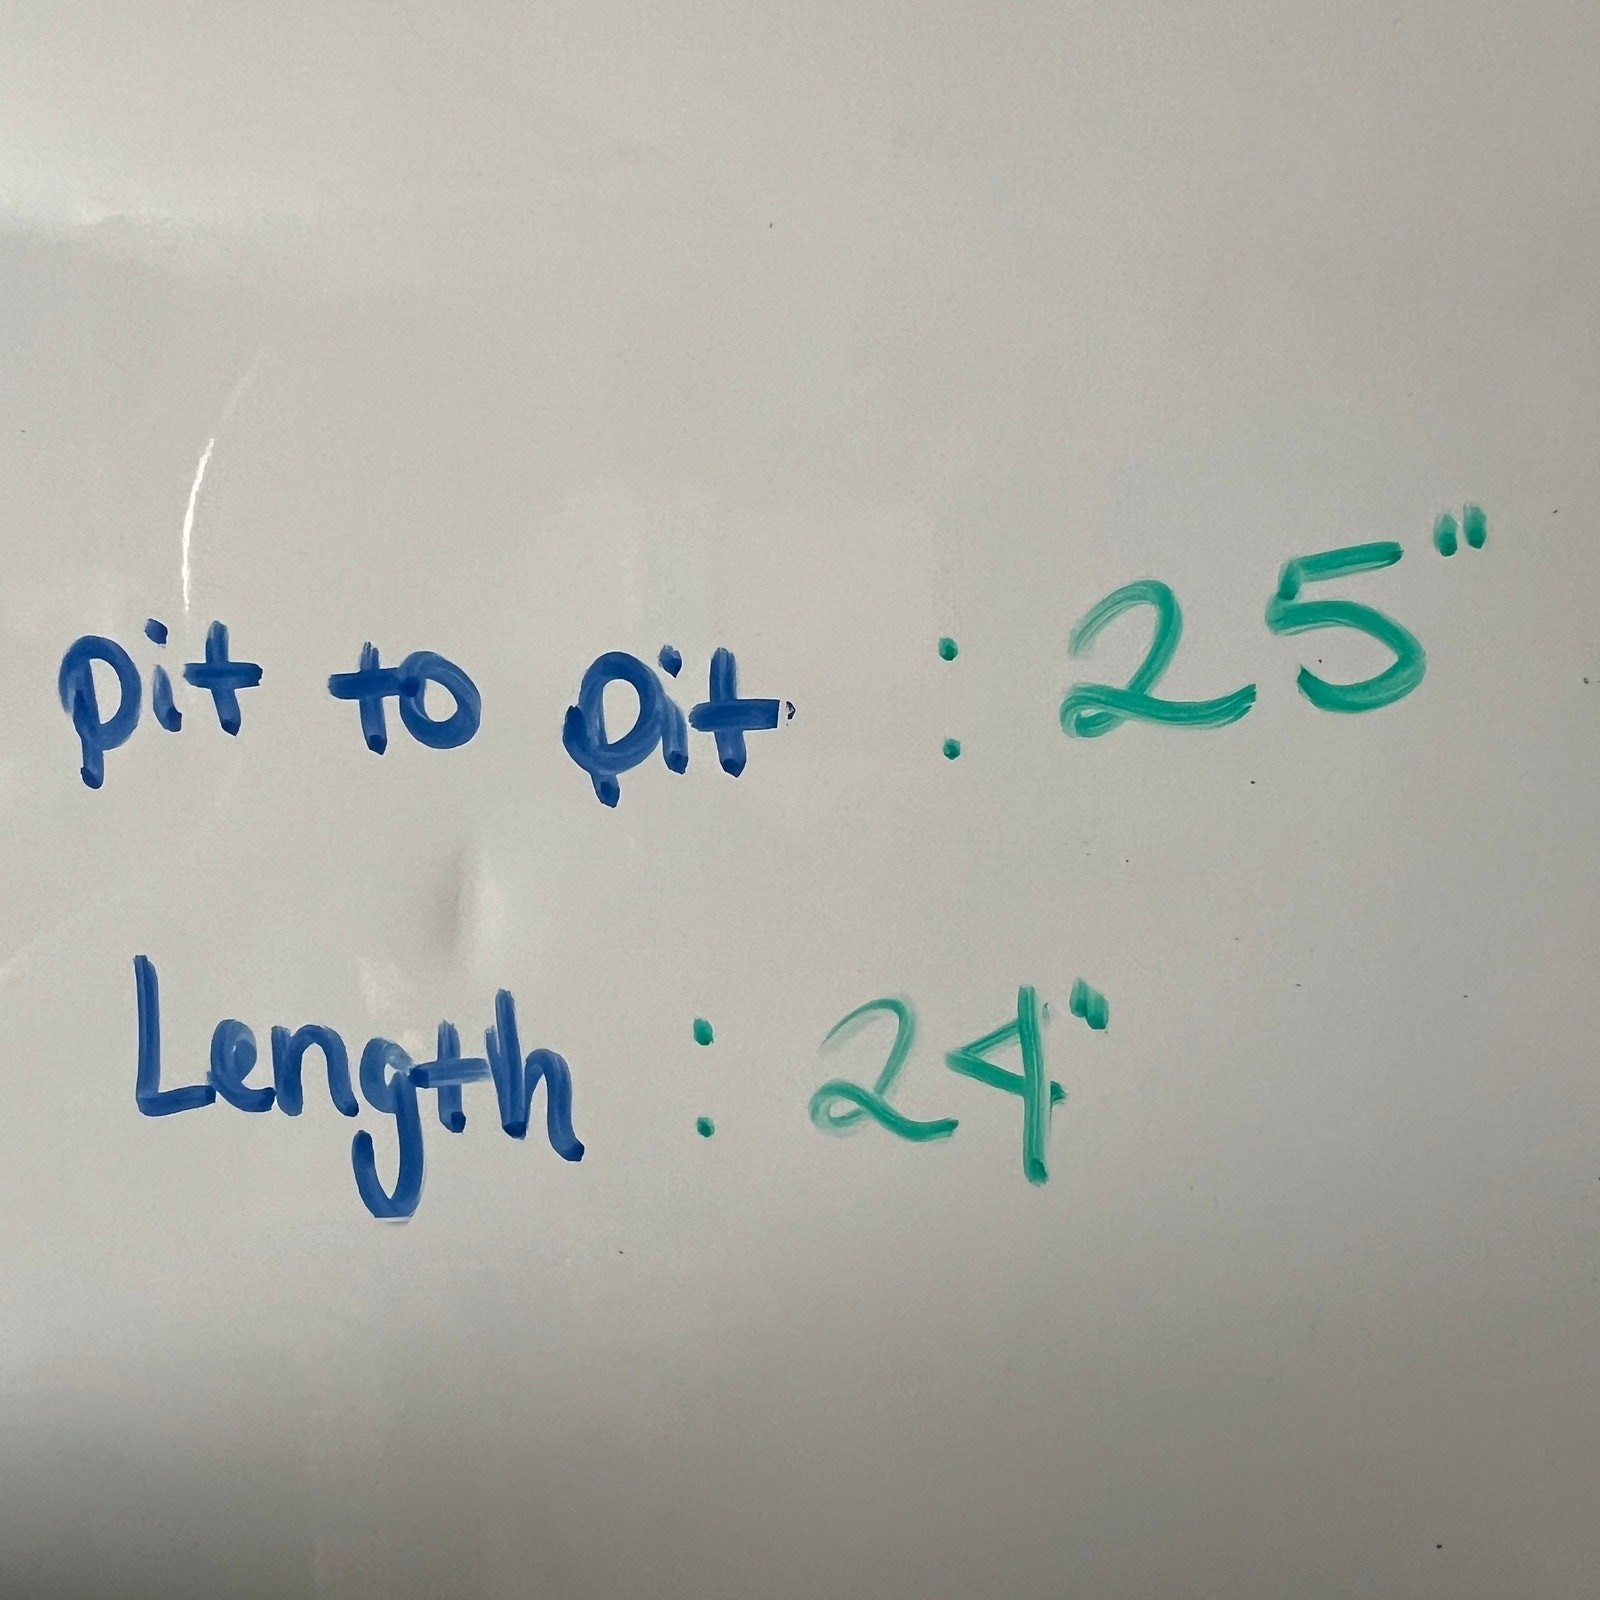 pit to pit : 25"
Length : 24"